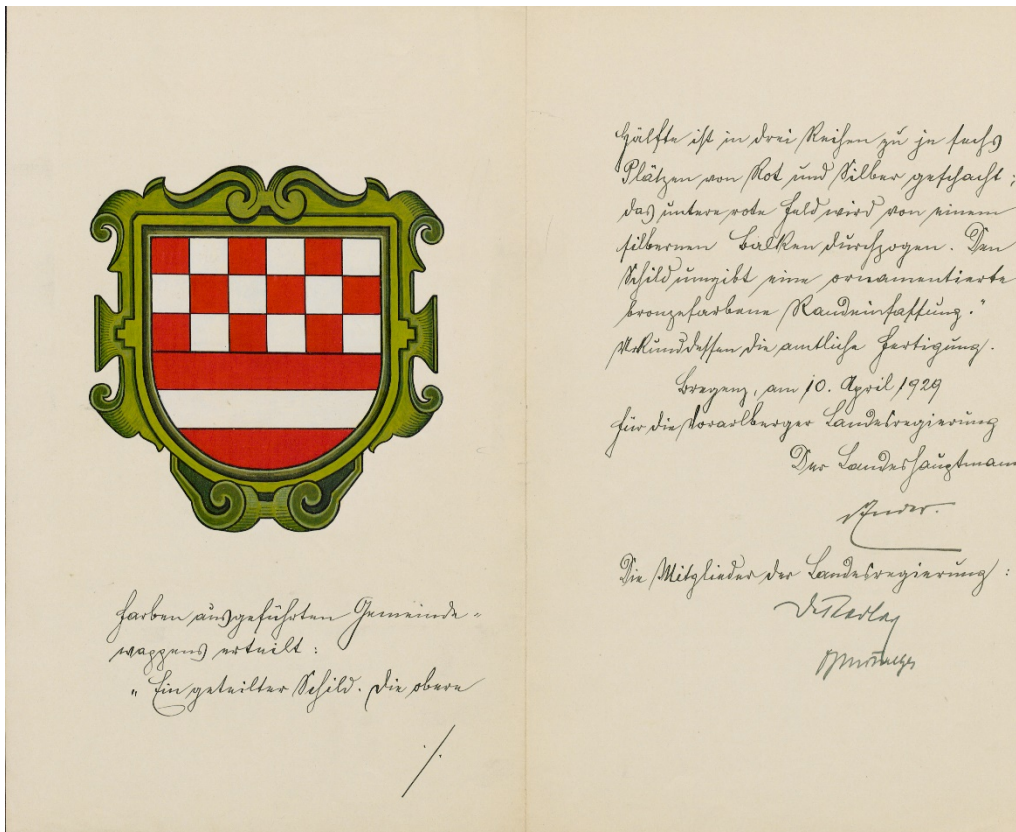 Farben ausgeführten Gemeinde-
wappens erteilt:
„Ein geteilter Schild. Die obere
./.
Hälfte ist in drei Reihen zu je sechs
Plätzen von Rot und Silber geschacht;
das untere rote Feld wird von einem
silbernen Balken durchzogen. Den
Schild umgibt eine ornamentierte
bronzefarbene Randeinfassung."
Urkunddessen die amtliche Fertigung.
Bregenz, am 10. April 1929
Für die Vorarlberger Landesregierung
Der Landeshauptmann
Die Mitglieder der Landesregierung: